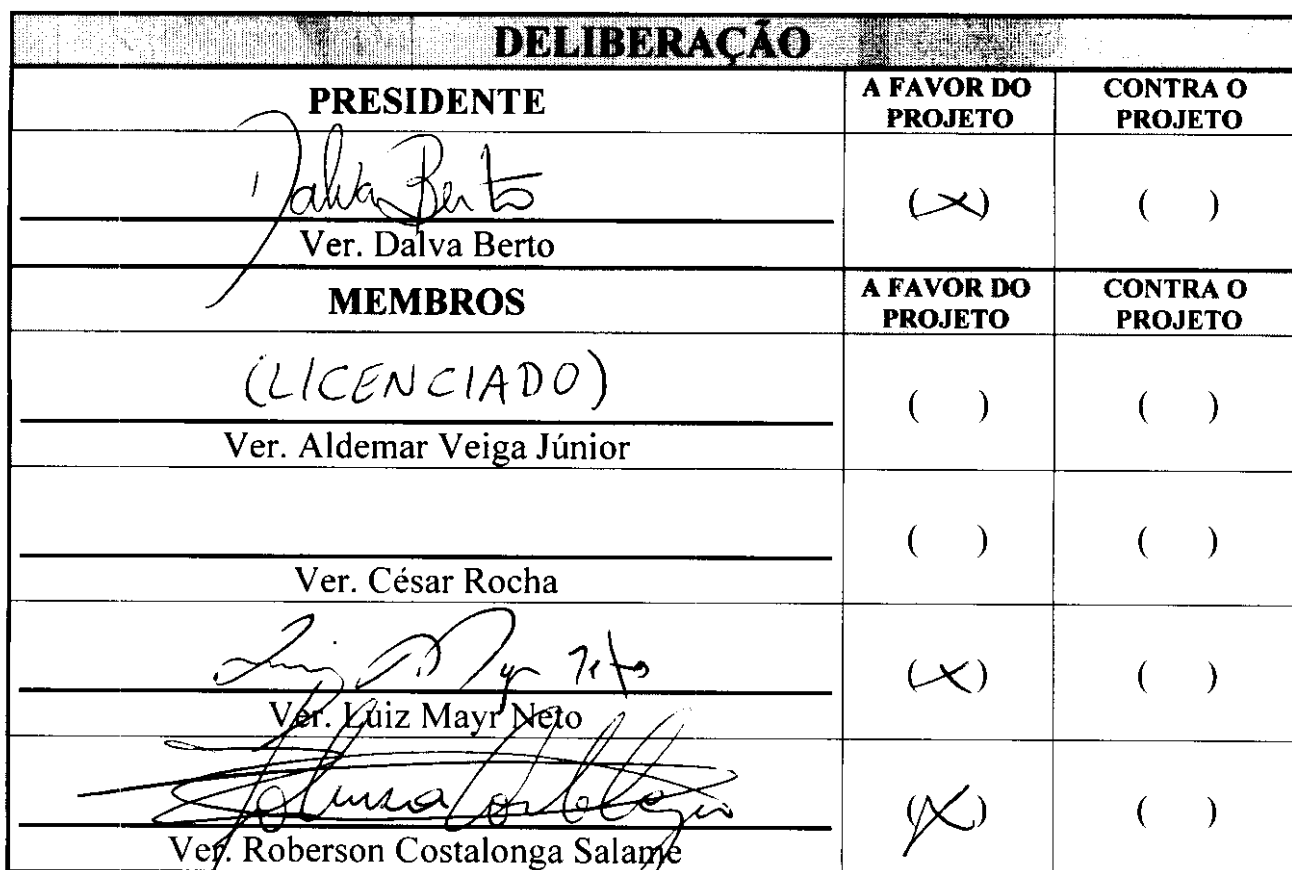 DELIBERAÇÃO
PRESIDENTE
A FAVOR DO PROJETO
CONTRA O PROJETO
Dalva Berto
(X)
( )
Ver. Dalva Berto
MEMBROS
A FAVOR DO PROJETO
CONTRA O PROJETO
(LICENCIADO)
( )
( )
Ver. Aldemar Veiga Júnior
( )
( )
Ver. César Rocha
(X)
( )
Ver. Luiz Mayr Neto
(X)
( )
Ver. Roberson Costalonga Salame